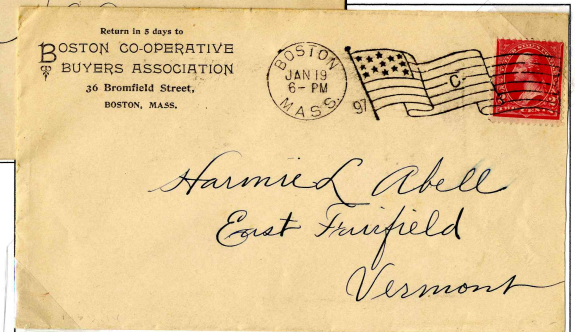 Return in 5 days to
BOSTON CO-OPERATIVE
BUYERS ASSOCIATION
36 Bromfield Street,
BOSTON, MASS.
BOSTON
JAN 19
6-PM
MASS.
97
C
Harmie L Abell
East Fairfield
Vermont